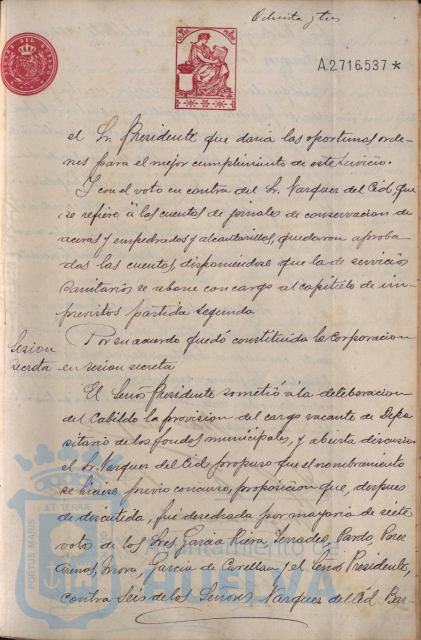 Ochenta y tres
A.2.716.537*
el Sr. Presidente que daria las oportunas orde-
nes para el mejor cumplimiento de este servicio.
Y con el voto en contra del Sr. Vazquez del Cid, que
se refiere á las cuentas de jornales de conservacion de
aceras y empedrados y alcantarillas, quedaron aproba
das las cuentas, disponiendose que la de servicios
Sanitarios se abone con cargo al capitulo de im-
previstos partida segunda
Por su acuerdo quedó constituida la Corporacion
Sesion
secreta
en sesion secreta
El Señor Presidente sometió á la deliberacion
del Cabildo la provision del cargo vacante de Depo
sitario de los fondos municipales, y abierta discusion
el Sr. Vazquez del Cid propuso que el nombramiento
se hiciese previo concurso, proposicion que, despues
de discutida, fué desechada por mayoria de siete
votos de los Sres Garcia Riera, Terrades, Pardo, Perez
Arenas, Mora, Garcia de Castellan y el Señor Presidente,
contra Seis de los Señores Vazquez del Cid, Bar-
PORTUS MARIS
ET TERRÆ
Ayuntamiento de
HUELVA